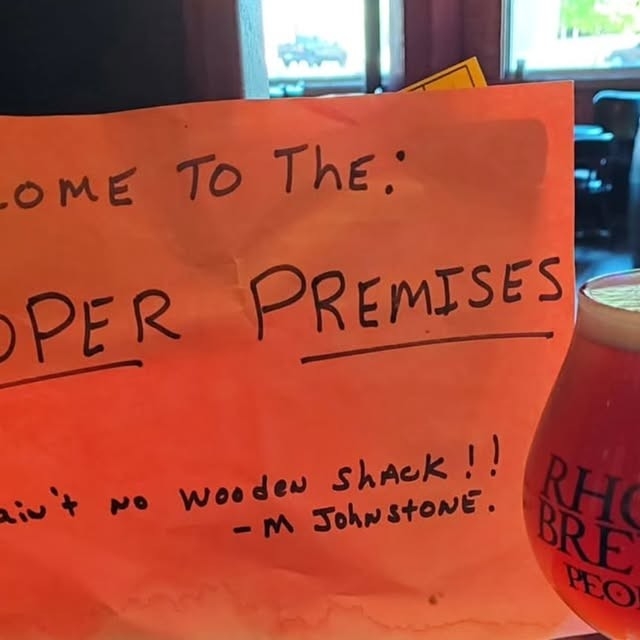 COME TO THE:
OPER PREMISES
ain't no wooden shack!!
- M JOHNSTONE.
RHO
BRE
PEO